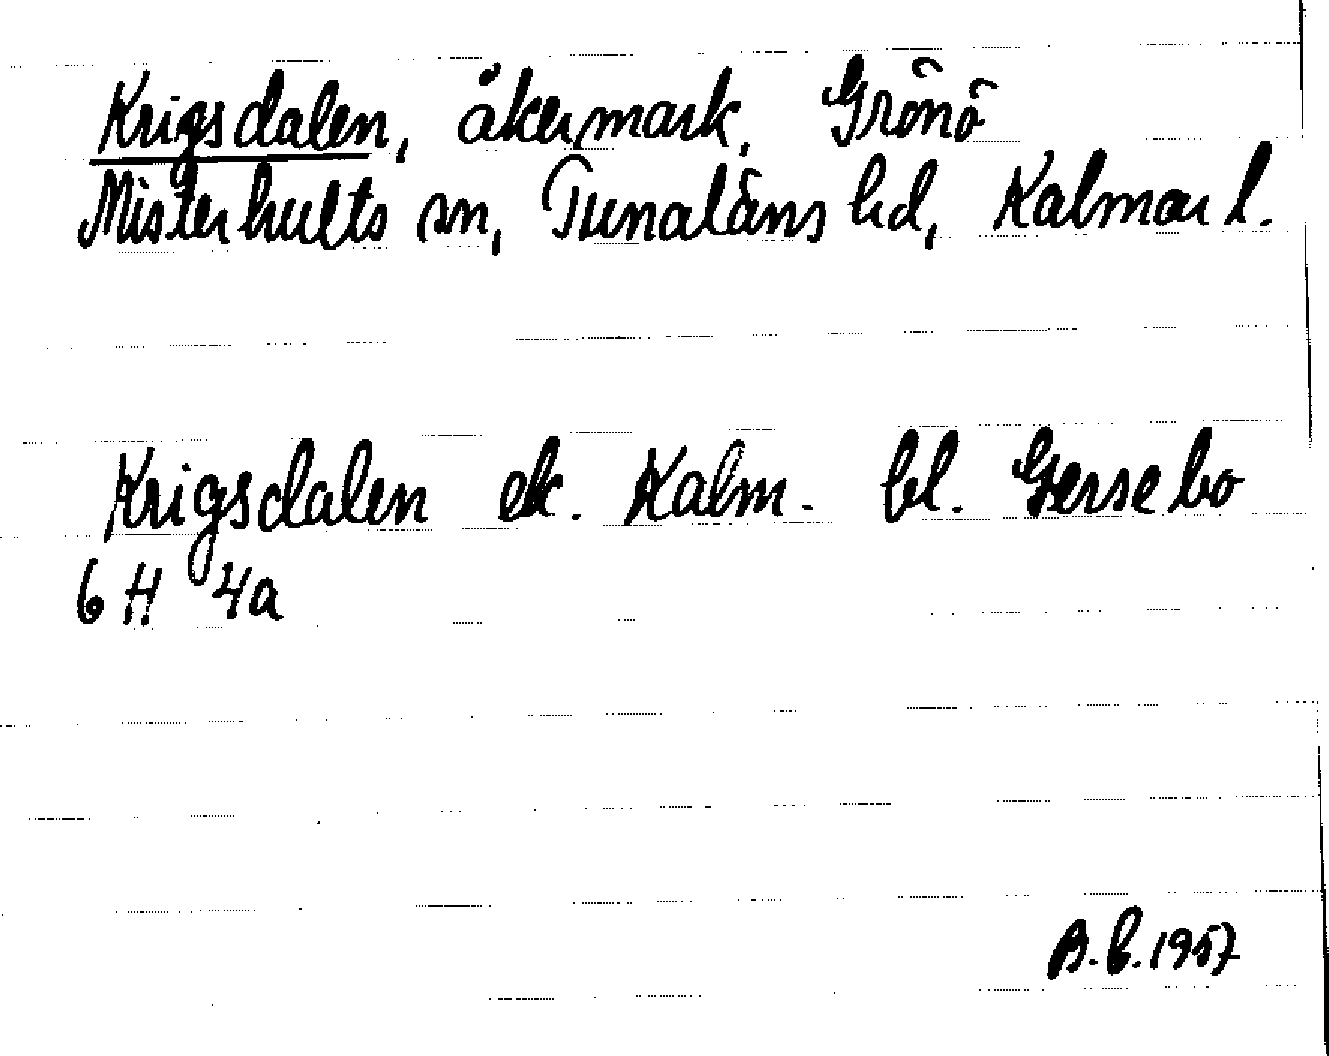 Krigsdalen, åkermark, Grönö
Misterhults sn, Tunaläns hd, Kalmar l.
Krigsdalen ek. Kalm. bl. Gersebo
6 H 4a
B.B. 1957